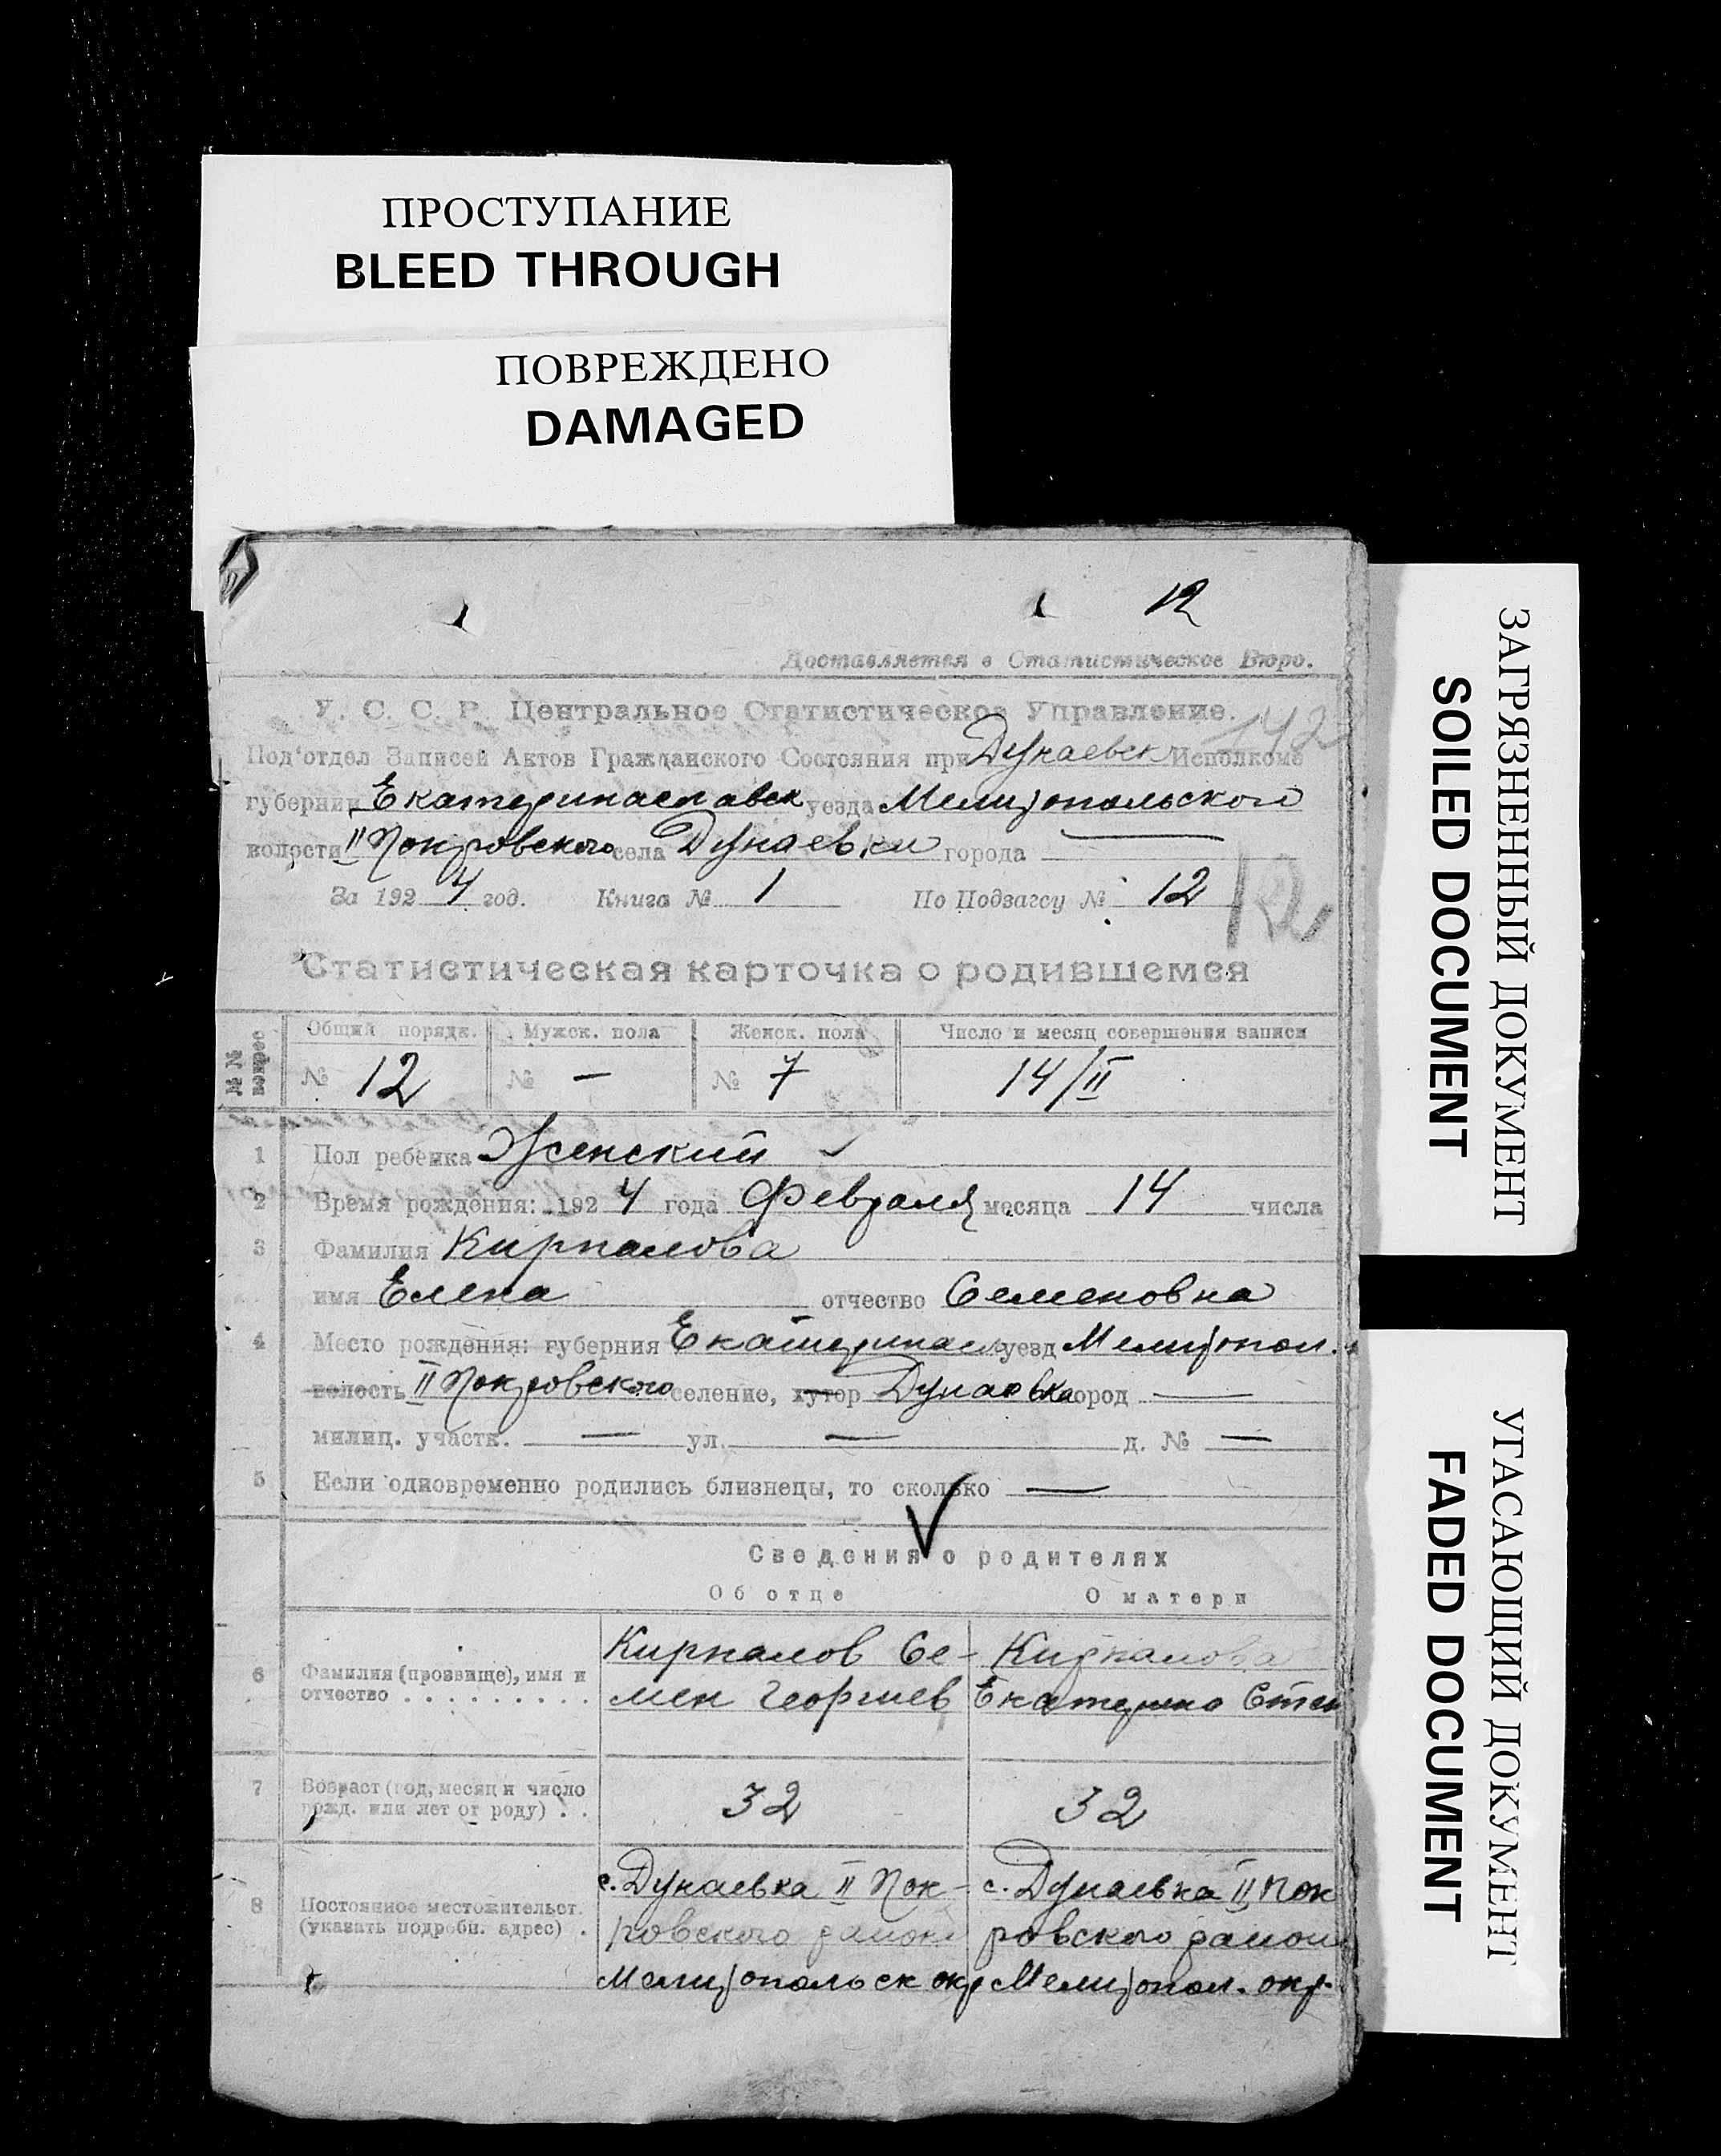 ПРОСТУПАНИЕ
BLEED THROUGH
ПОВРЕЖДЕНО
DAMAGED
12
Доставляется в Статистическое Бюро.
У. С. С. Р. Центральное Статистическое Управление.
142
Под'отдел Записей Актов Гражданского Состояния при Дунаевск Исполкоме
губернии Екатеринославск уезда Мелитопольского
волости II Покровского села Дунаевки города —
За 1924 год. Книга № 1 По Подзагсу № 12
12
Статистическая карточка о родившемся
№№ Общий порядк. Мужск. пола Женск. пола Число и месяц совершения записи
№ 12 № — № 7 14/II
1 Пол ребенка Женский
2 Время рождения: 1924 года Февраля месяца 14 числа
3 Фамилия Кирпалова
имя Елена отчество Семеновна
4 Место рождения: губерния Екатеринасл уезд Мелитопол.
волость II Покровского селение, хутор Дунаевка город —
милиц. участк. — ул. — д. № —
5 Если одновременно родились близнецы, то сколько —
Сведения о родителях
Об отце О матери
6 Фамилия (прозвище), имя и отчество . . . . . . . . .
Кирпалов Се-
мен Георгиев
Кирпалова
Екатерина Степ
7 Возраст (год, месяц и число рожд. или лет от роду) . .
32 32
8 Постоянное местожительст. (указать подробн. адрес) .
с. Дунаевка II Пок-
ровского район
Мелитопольск окр
с. Дунаевка II Пок
ровского район
Мелитопол. окр.
ЗАГРЯЗНЕННЫЙ ДОКУМЕНТ
SOILED DOCUMENT
УГАСАЮЩИЙ ДОКУМЕНТ
FADED DOCUMENT